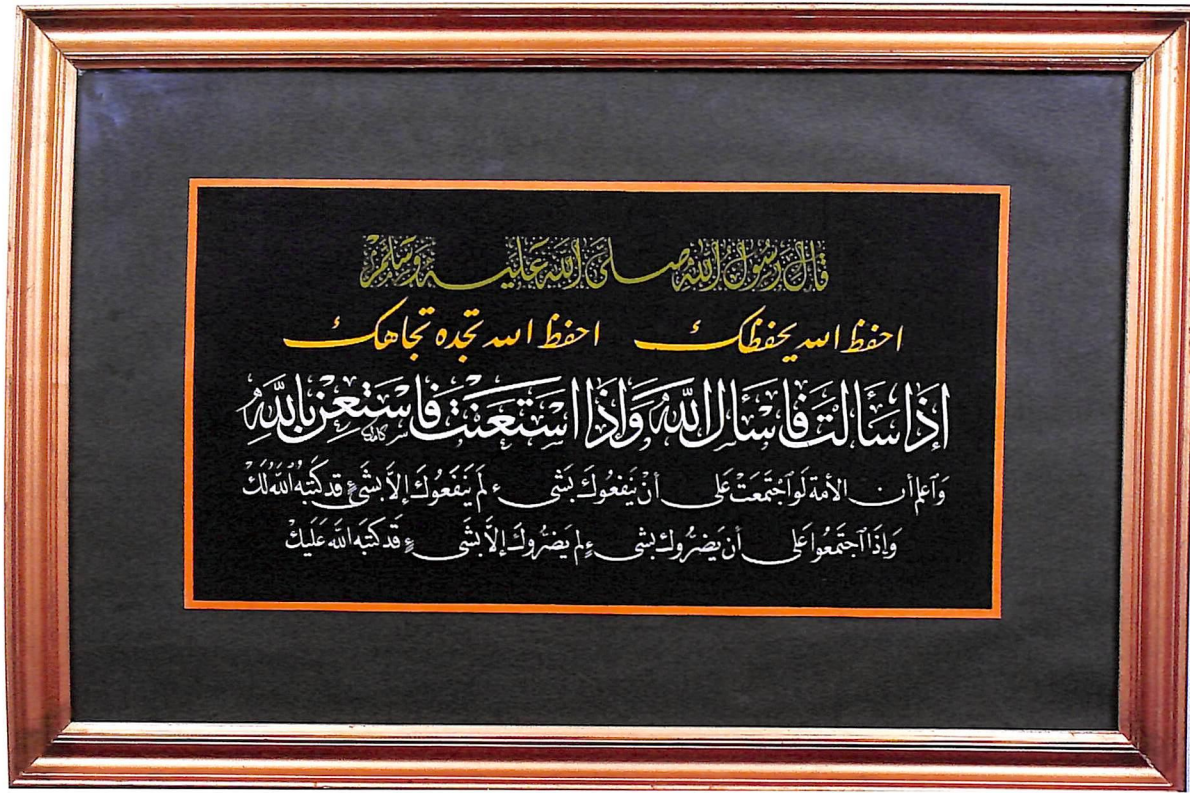 قَالَ رَسُولُ اللهِ صَلَّى اللهُ عَلَيْهِ وَسَلَّمْ
احفظ الله يحفظك احفظ الله تجده تجاهك
إِذَا سَأَلتَ فَاسْأَلِ اللَّهَ وَإِذَا اسْتَعَنتَ فَاسْتَعِنْ بِاللَّهِ
وَٱعلم أن الأمة لَو ٱجْتَمَعَتْ عَلى أنْ يَنْفعُوكَ بشَىء لَم يَنفَعُوكَ إلاَّ بشَىءٍ قد كتبَهُ اللهُ لَكْ
وَإذَا ٱجتَمَعُوا عَلى أن يَضرُّوكَ بشىءٍ لم يَضرُّوكَ إلاَّ بشَىءٍ قَد كتبَه الله عَليكْ